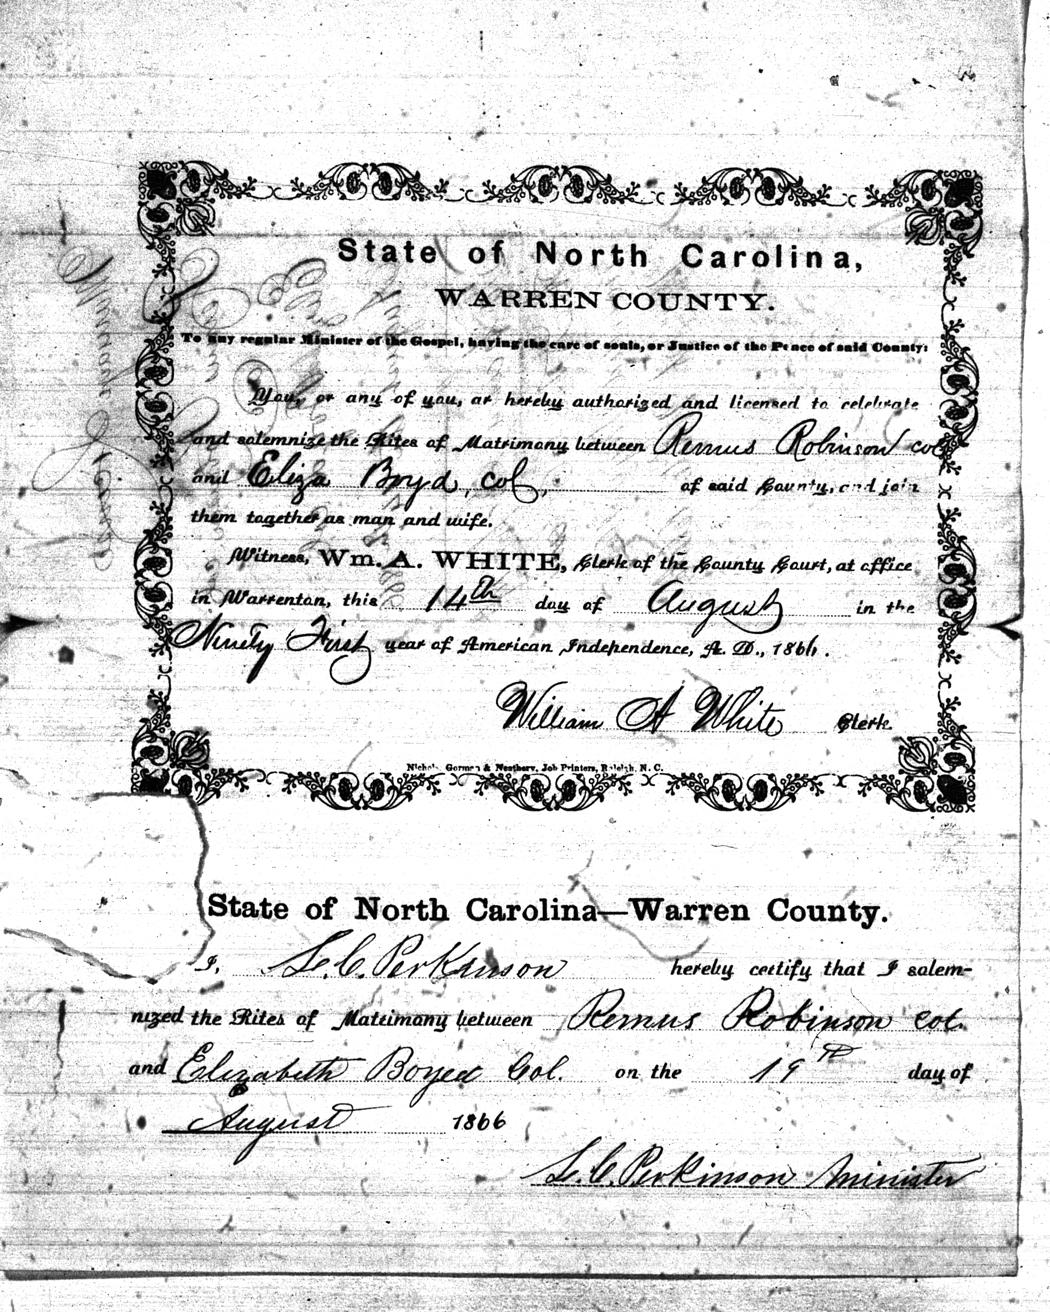 State of North Carolina,
WARREN COUNTY.
To any regular Minister of the Gospel, having the care of souls, or Justice of the Peace of said County:
You, or any of you, ar hereby authorized and licensed to celebrate
and solemnize the Rites of Matrimony between Remus Robinson col
and Eliza Boyd, col, of said County, and join
them together as man and wife.
Witness, Wm. A. WHITE, Clerk of the County Court, at office
in Warrenton, this 14th day of August in the
Ninety First year of American Independence, A. D., 1866.
William A White Clerk.
Nichols, Gorman & Neathery, Job Printers, Raleigh, N. C.
State of North Carolina—Warren County.
I, L. C. Perkinson hereby certify that I solem-
nized the Rites of Matrimony between Remus Robinson col.
and Elizabeth Boyed Col. on the 19th day of
August 1866
L. C. Perkinson Minister